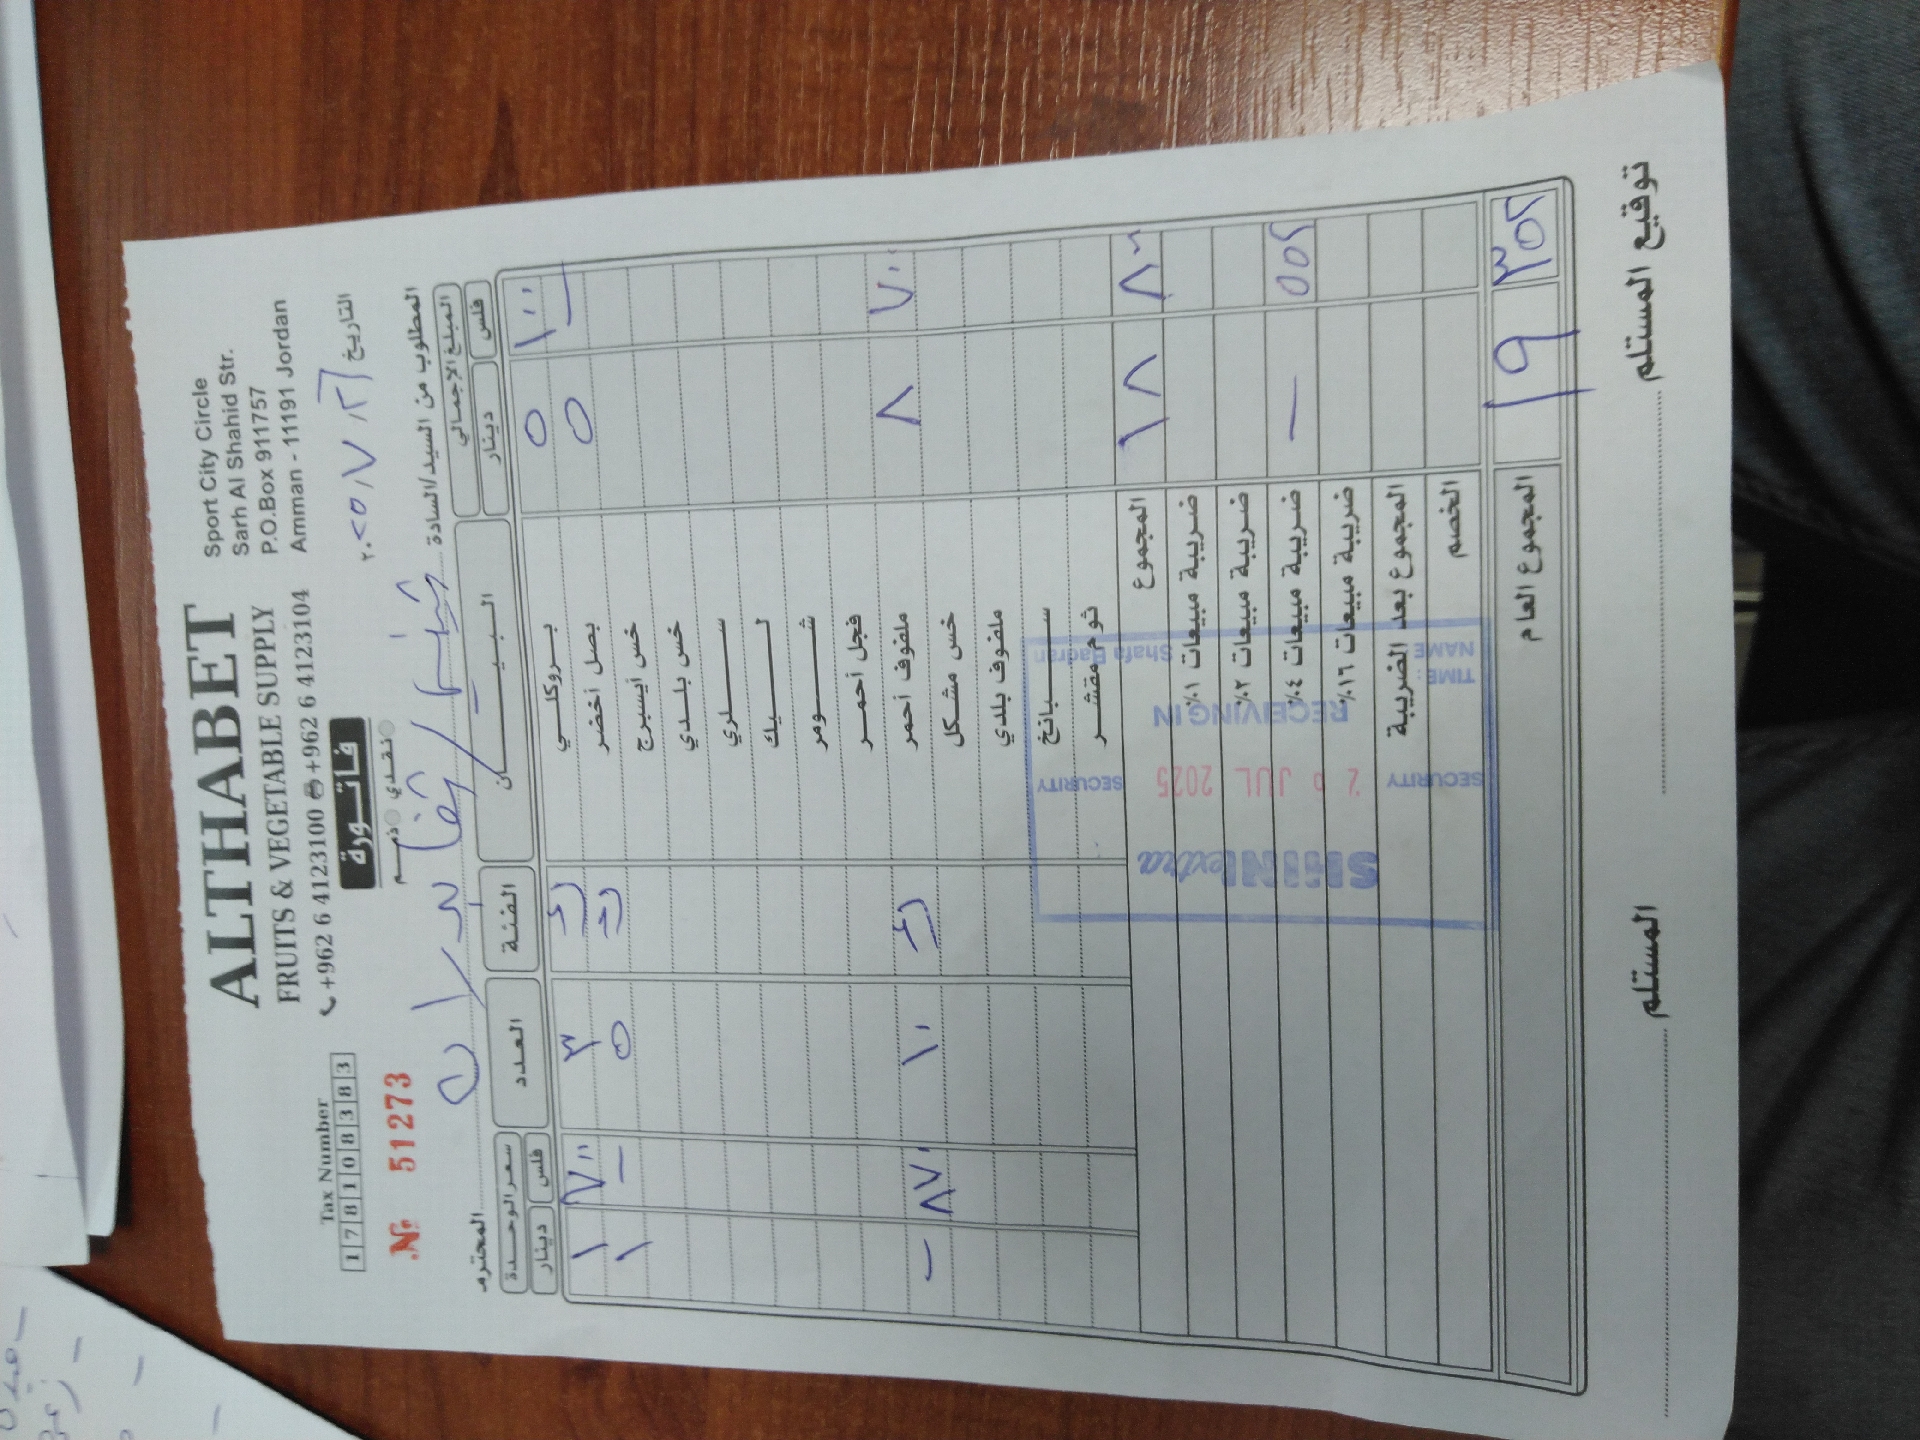 ALTHABET
FRUITS & VEGETABLE SUPPLY
+962 6 4123100 +962 6 4123104
Sport City Circle
Sarh Al Shahid Str.
P.O.Box 911757
Amman - 11191 Jordan
Tax Number
178108383
فاتورة
نقدي ذمم
№ 51273
التاريخ ٢٠٢٥/٧/٢٦
المطلوب من السيد/السادة شفا بدران المحترم
المبلغ الاجمالي البيان الفئة العدد سعر الوحدة
فلس دينار فلس دينار
١٠٠ ٥ بروكلي ٣ ٧٠٠ ١
- ٥ بصل أخضر ٥ - ١
خس آيسبرج
خس بلدي
سلري
ليك
شومر
فجل أحمر
٧٠٠ ٨ ملفوف أحمر ١٠ ٨٧٠ -
خس مشكل
ملفوف بلدي
سبانخ
ثوم مقشر
٨٠٠ ١٨ المجموع
ضريبة مبيعات ١٪
ضريبة مبيعات ٢٪
٥٥٢ - ضريبة مبيعات ٤٪
ضريبة مبيعات ١٦٪
المجموع بعد الضريبة
الخصم
٣٥٢ ١٩ المجموع العام
توقيع المستلم
المستلم
Shafa Badran
RECEIVING IN
TIME :
NAME
SECURITY
JUL 2025
SECURITY
extra